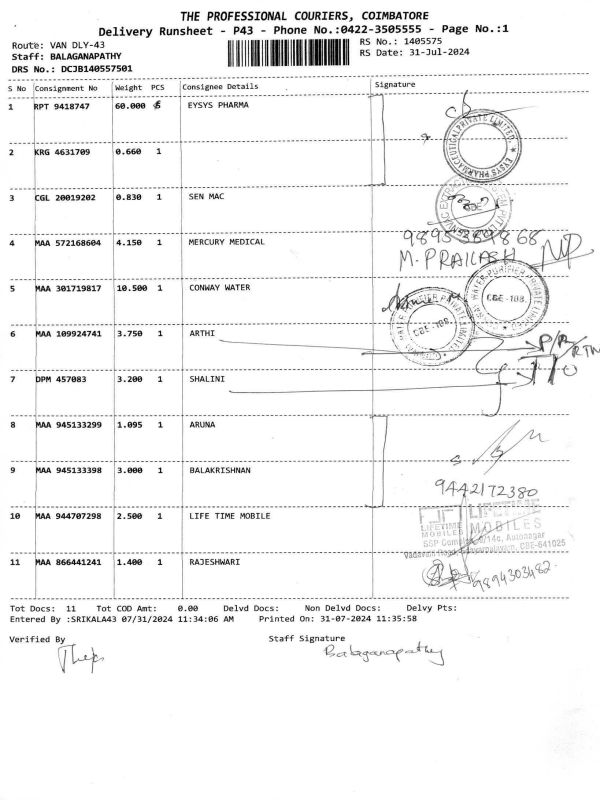 THE PROFESSIONAL COURIERS, COIMBATORE
Delivery Runsheet - P43 - Phone No.:0422-3505555 - Page No.:1
Route: VAN DLY-43
RS No.: 1405575
Staff: BALAGANAPATHY
RS Date: 31-Jul-2024
DRS No.: DCJB140557501
S No Consignment No Weight PCS Consignee Details Signature
1 RPT 9418747 60.000 5 EYSYS PHARMA
EYSYS PHARMACEUTICAL PRIVATE LIMITED
2 KRG 4631709 0.660 1
3 CGL 20019202 0.830 1 SEN MAC
CBE
4 MAA 572168604 4.150 1 MERCURY MEDICAL
M. PRAKASH
5 MAA 301719817 10.500 1 CONWAY WATER
WATER PURIFIER PRIVATE LIMITED
CBE-108.
WATER PURIFIER PRIVATE LIMITED
CBE-108.
6 MAA 109924741 3.750 1 ARTHI
7 DPM 457083 3.200 1 SHALINI
8 MAA 945133299 1.095 1 ARUNA
9 MAA 945133398 3.000 1 BALAKRISHNAN
9442172380
10 MAA 944707298 2.500 1 LIFE TIME MOBILE
LIFETIME MOBILES
LIFETIME MOBILES
SSP Complex, Autonagar
CBE-641025
11 MAA 866441241 1.400 1 RAJESHWARI
9894303482
Tot Docs: 11 Tot COD Amt: 0.00 Delvd Docs: Non Delvd Docs: Delvy Pts:
Entered By :SRIKALA43 07/31/2024 11:34:06 AM Printed On: 31-07-2024 11:35:58
Verified By Staff Signature
Balaganapathy